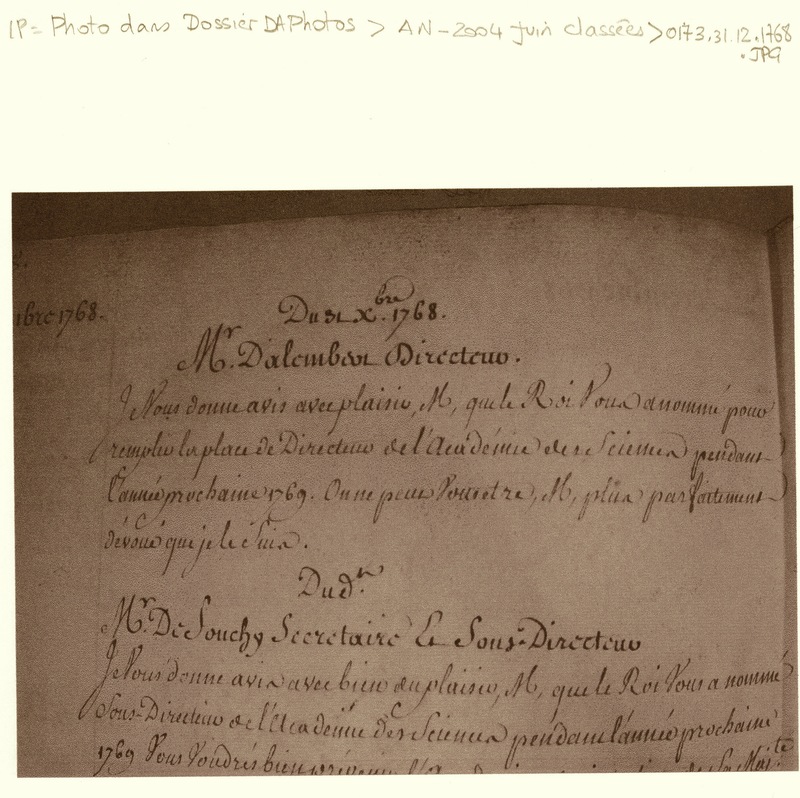 IP = Photo dans Dossier DAPhotos > AN-2004 juin classées > 0173.31.12.1768
.JPG
1bre 1768.
Du 31 Xbre. 1768.
Mr. Dalembert Directeur.
Je Vous donne avis avec plaisir, M, que le Roi Vous a nommé pour
remplir la place de Directeur de l'Académie des Sciences pendant
l'année prochaine 1769. On ne peut Vous etre, M, plus parfaitement
dévoué que je le Suis.
Du dn.
Mr. De Fouchy Secretaire Et Sous-Directeur
Je Vous donne avis avec bien du plaisir, M, que le Roi Vous a nommé
Sous-Directeur de l'Academie des Sciences pendant l'année prochaine
1769 Vous Voudrés bien prévenir de Sa Majté